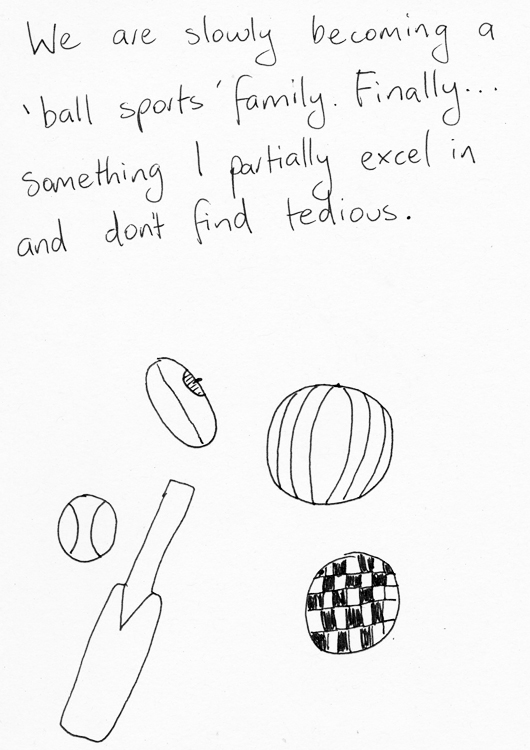 We are slowly becoming a
'ball sports' family. Finally...
something I partially excel in
and don't find tedious.